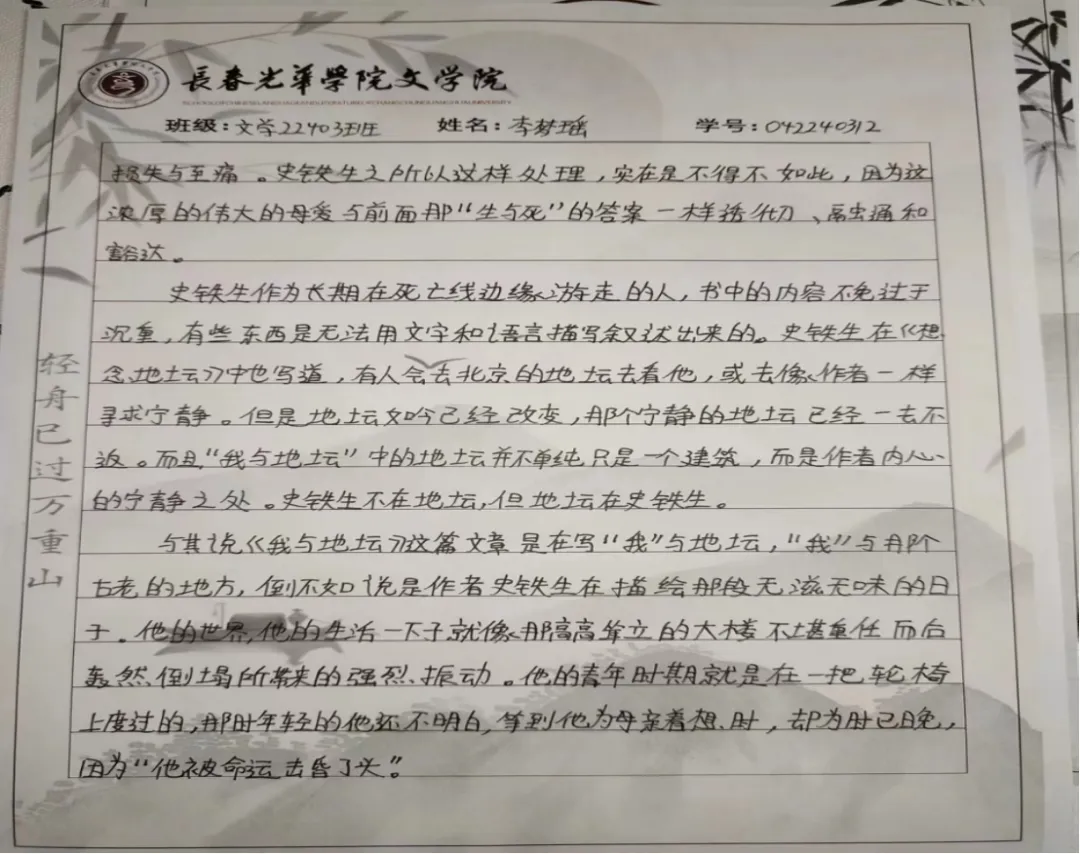 長春光華學院文學院
班级：文学22403班 姓名：李梦瑶 学号：042240312
损失与至痛。史铁生之所以这样处理，实在是不得不如此，因为这
浓厚的伟大的母爱与前面那“生与死”的答案一样透彻、融通和
豁达。
史铁生作为长期在死亡线边缘游走的人，书中的内容不免过于
沉重，有些东西是无法用文字和语言描写叙述出来的。史铁生在《想
念地坛》中也写道，有人会去北京的地坛去看他，或去像作者一样
寻求宁静。但是地坛如今已经改变，那个宁静的地坛已经一去不
返。而且“我与地坛”中的地坛并不单纯只是一个建筑，而是作者内心
的宁静之处。史铁生不在地坛，但地坛在史铁生。
与其说《我与地坛》这篇文章是在写“我”与地坛，“我”与那个
古老的地方，倒不如说是作者史铁生在描绘那段无滋无味的日
子。他的世界，他的生活一下子就像那高高耸立的大楼不堪重任而后
轰然倒塌所带来的强烈振动。他的青年时期就是在一把轮椅
上度过的，那时年轻的他还不明白，等到他为母亲着想时，却为时已晚，
因为“他被命运击昏了头”。
轻舟已过万重山